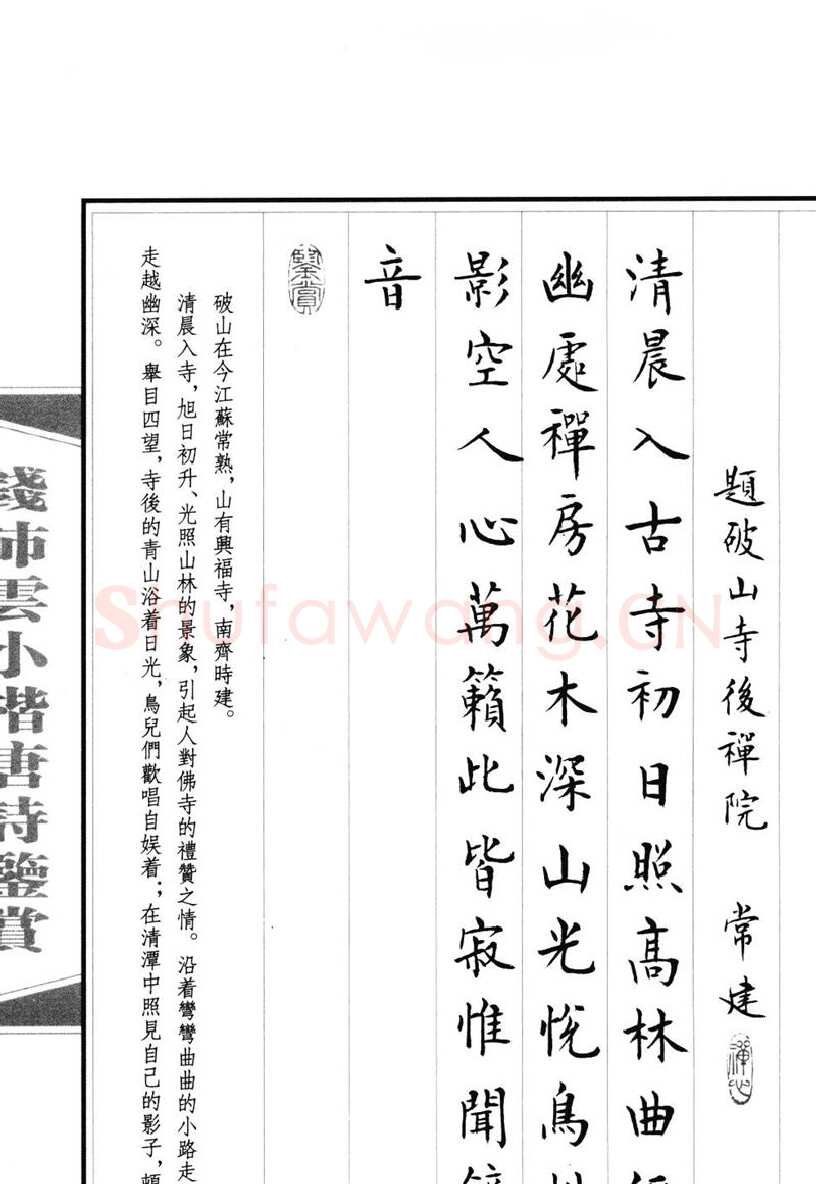 題破山寺後禪院 常建
禪心
清晨入古寺初日照高林曲
幽處禪房花木深山光悦鳥
影空人心萬籟此皆寂惟聞
音
鑒賞
破山在今江蘇常熟，山有興福寺，南齊時建。
清晨入寺，旭日初升、光照山林的景象，引起人對佛寺的禮贊之情。沿着彎彎曲曲的小路走
走越幽深。舉目四望，寺後的青山浴着日光，鳥兒們歡唱自娱着；在清潭中照見自己的影子，頓
錢沛雲小楷唐詩鑒賞
Shufawang.CN